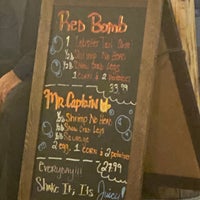 Red Bomb
1 Lobster Tail 5oz
½lb Shrimp No Head
½lb Snow Crab Legs
1 Corn & 2 potatoes
33.99
Mr. Captain
½lb Shrimp No Head
½lb Snow Crab Legs
½lb
2 egg, 1 Corn & 2 potatoes
27.99
Everyday!!!
Shake It, Its Juicy!